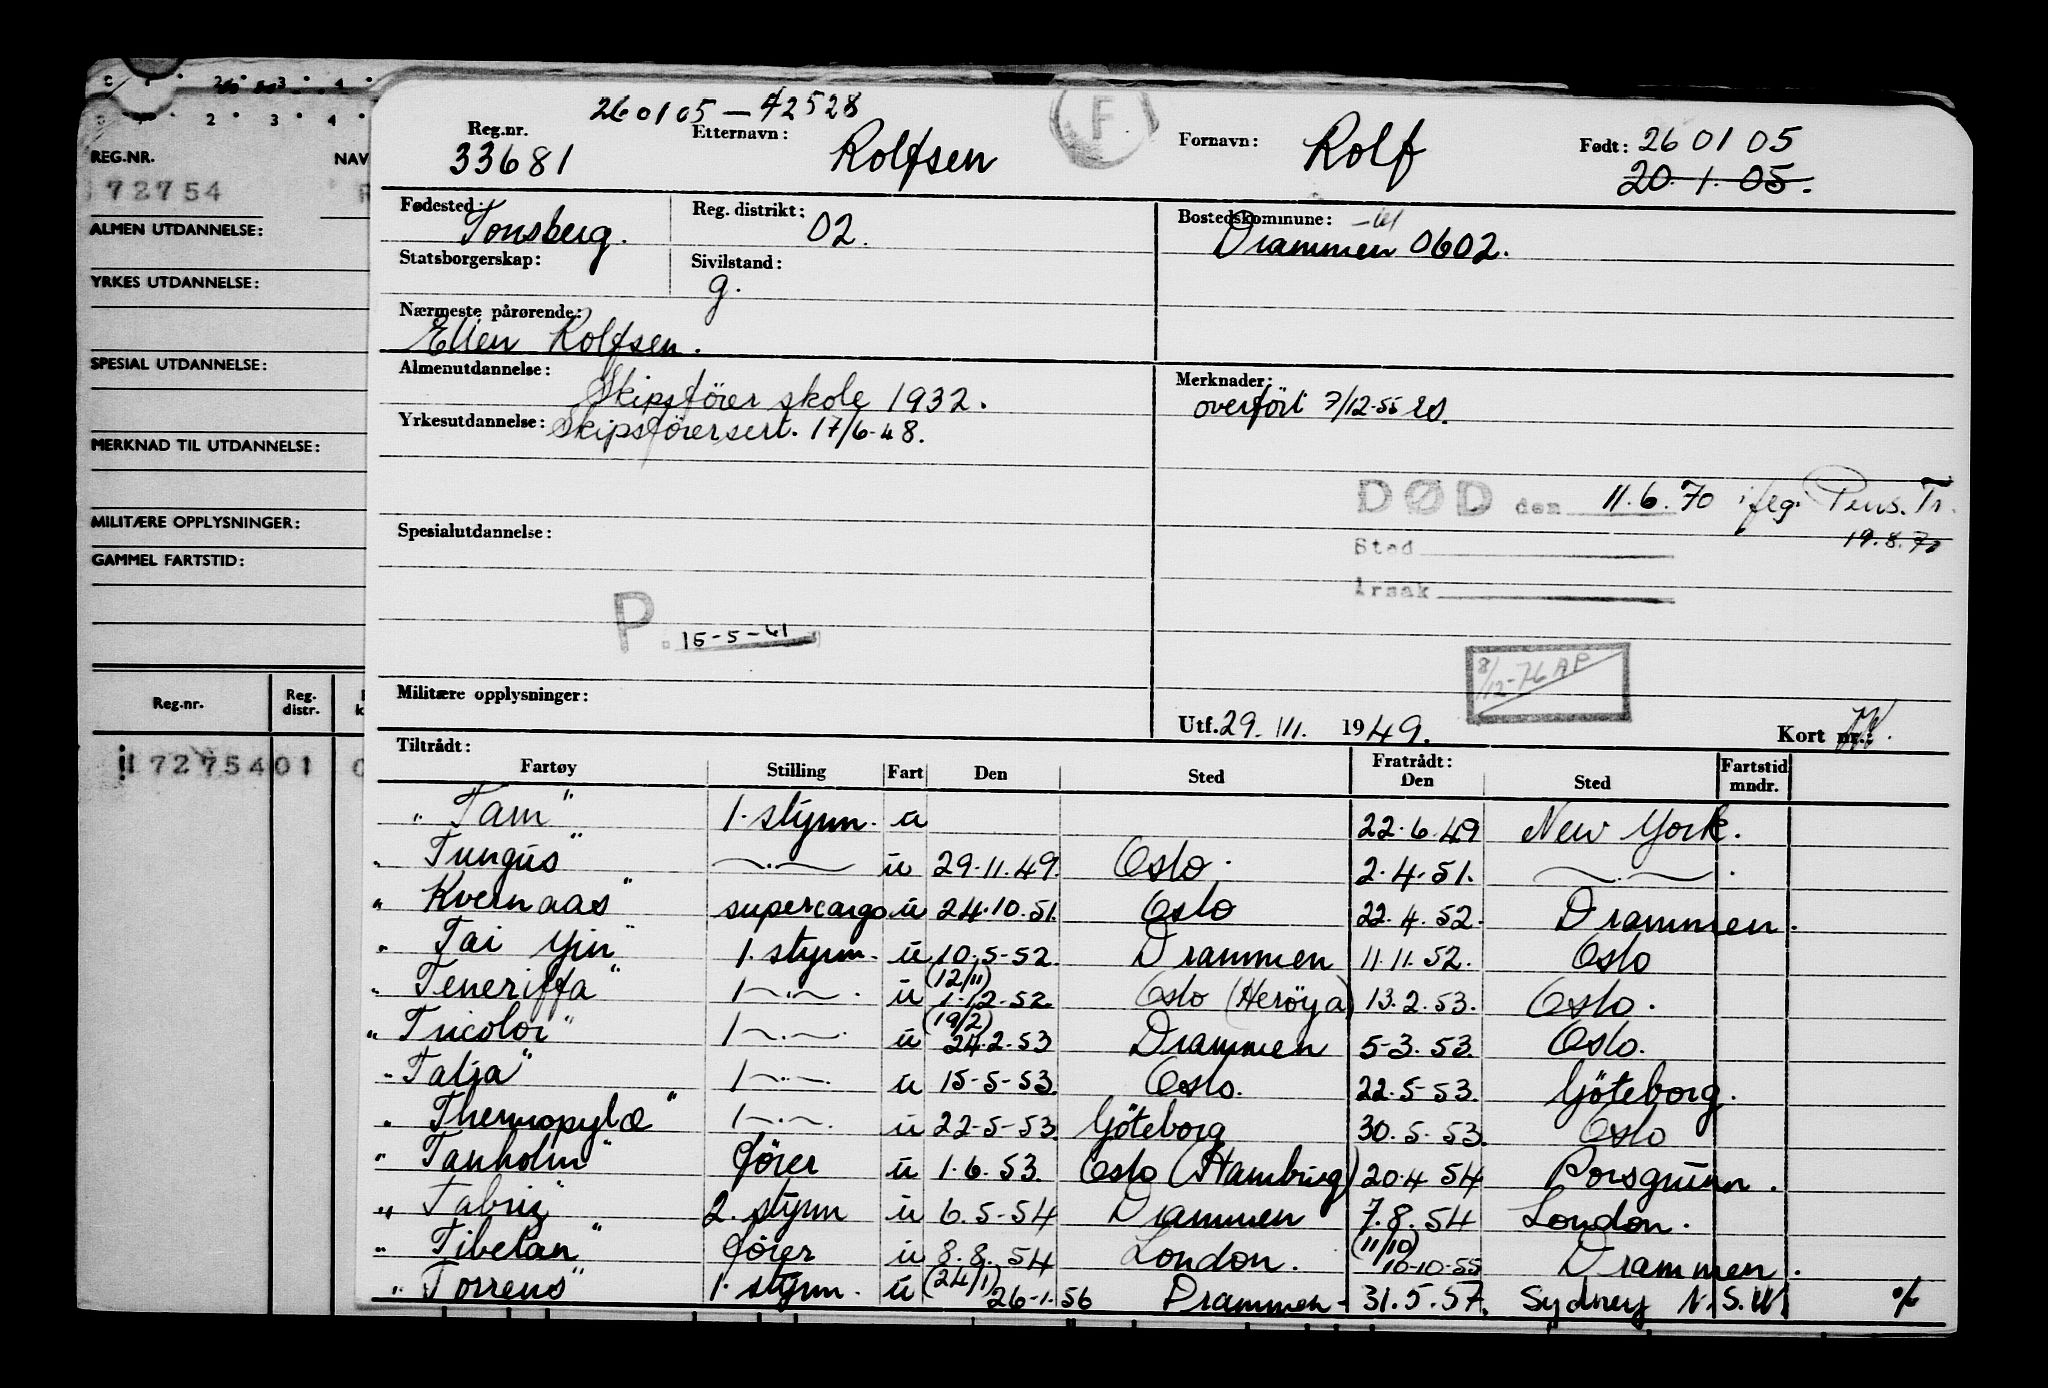 260105-42528
Reg.nr. 33681 Etternavn: Rolfsen F Fornavn: Rolf Født: 26 01 05
20. 1. 05.
Fødested: Tønsberg. Reg. distrikt: 02. Bostedskommune: Drammen 0602.
Statsborgerskap: Sivilstand: g.
Nærmeste pårørende: Ellen Rolfsen.
Almenutdannelse: Skipsfører skole 1932. Merknader: overført 7/12-55
Yrkesutdannelse: Skipsførersert. 17/6-48.
DØD den 11.6.70 iføg. Pens. Tr.
19.8.70
Spesialutdannelse: Sted
Årsak
P. 15-5-61
8/12-76 AP
Militære opplysninger:
Utf. 29. III. 1949. Kort nr.:
Tiltrådt: Fratrådt:
Fartøy Stilling Fart Den Sted Den Sted Fartstid mndr.
"Tam" 1. styrm. u 22.6.49 New York.
"Tungus" —.— u 29.11.49. Oslo. 2.4.51. —.— .
"Kvernaas" supercargo u 24.10.51. Oslo 22.4.52. Drammen.
"Tai Yin" 1. styrm. u 10.5-52. Drammen 11.11.52. Oslo
"Teneriffa" 1—.— . u (12/11) 1-12-52. Oslo (Herøya) 13.2.53. Oslo.
"Tricolor" 1—.— . u (19/2) 24.2.53 Drammen 5-3.53. Oslo.
"Talja" 1—.— u 15-5-53. Oslo. 22.5-53. Göteborg.
"Thermopylæ" 1—.— u 22-5-53. Göteborg 30.5.53. Oslo
"Tanholm" fører u 1.6.53. Oslo (Hamburg) 20.4 54 Porsgrunn.
"Tabriz" 2. styrm u 6.5-54 Drammen 7.8.54 London.
"Tibetan" fører u 8.8.54 London. (11/10) 10-10-55 Drammen.
"Torrens" 1. styrm. u (24/1) 26-1.56 Drammen 31.5.57. Sydney N.S.W. %
REG.NR. NAV
72754 R
ALMEN UTDANNELSE:
YRKES UTDANNELSE:
SPESIAL UTDANNELSE:
MERKNAD TIL UTDANNELSE:
MILITÆRE OPPLYSNINGER:
GAMMEL FARTSTID:
Reg.nr. Reg. distr.
7275401